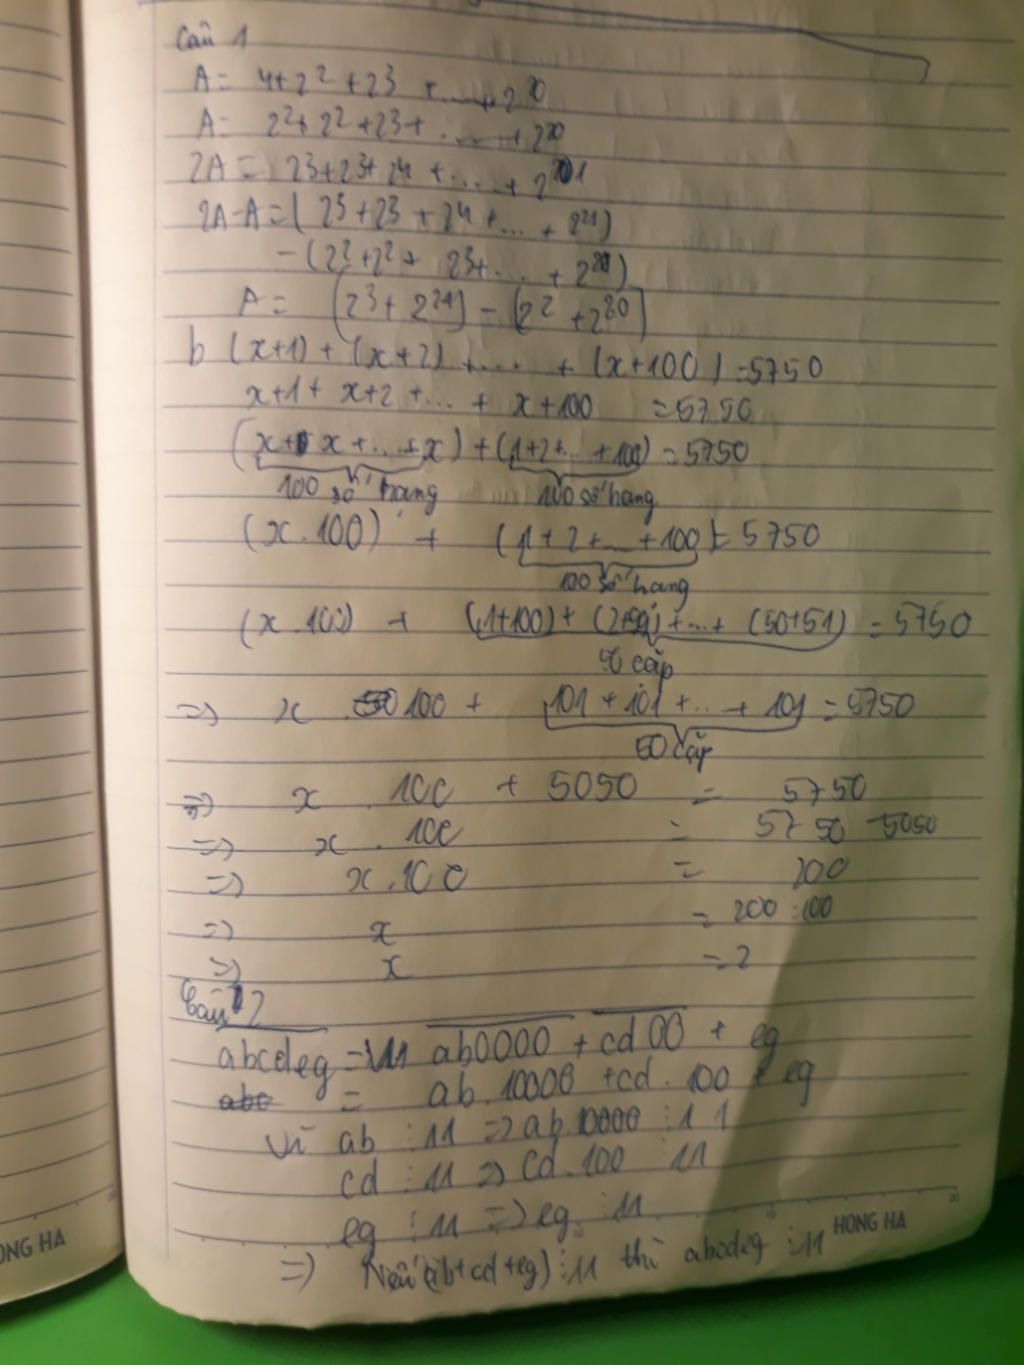 Câu 1
A = 4+2² +2³ + ... + 2²⁰
A = 2²+ 2² +2³+ ..... + 2²⁰
2A = 2³+2³+ 2⁴ +.... + 2²¹
2A-A = ( 2³ +2³ + 2⁴ +... + 2²¹)
- (2² +2² + 2³+ ... + 2²⁰)
A = (2³ + 2²¹) - (2² + 2²⁰)
b (x+1) + (x+2) + .... + (x+100) =5750
x+1+ x+2 +... + x+100 =5750
(x+ x +...+x) + (1+2+... +100) =5750
100 số hạng 100 số hạng
(x.100) + (1+2+...+100) = 5750
100 số hạng
(x.100) + (1+100) + (2+99) +...+ (50+51) = 5750
50 cặp
=> x . 100 + 101 + 101 +... + 101 = 5750
50 cặp
=> x . 100 + 5050 = 5750
=> x . 100 = 5750 - 5050
=> x.100 = 200
=> x = 200 :100
=> x = 2
Câu 2
abcdeg = ab0000 + cd00 + eg
abc = ab.10000 +cd. 100 + eg
Vì ab ⋮ 11 => ab.10000 ⋮ 11
cd ⋮ 11 => cd.100 ⋮ 11
eg ⋮ 11 => eg ⋮ 11
=> Nếu (ab+cd+eg) ⋮ 11 thì abcdeg ⋮ 11
HONG HA
ONG HA